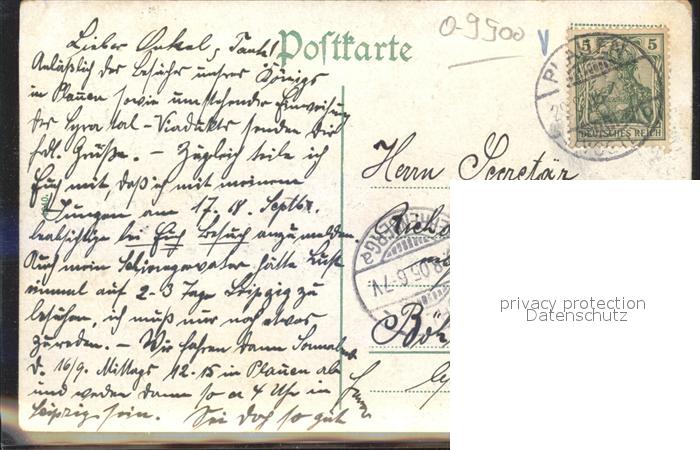 Postkarte
O-9900
Lieber Onkel, Tante!
Anläßlich des Besuchs unseres Königs
in Plauen sowie umstehender Einweihung
des Syratal-Viadukts senden wir
frdl. Grüße. - Zugleich teile ich
Euch mit, daß ich mit meinem
Jungen am 17. 18. Septbr.
beabsichtige bei Euch Besuch anzumelden.
Auch mein Schwiegervater hätte Lust
einmal auf 2-3 Tage Leipzig zu
besuchen, ich muß nur noch etwas
zureden. - Wir fahren dann Sonnabend
d. 16/9. Mittags 12.15 in Plauen ab
und werden dann so ca 4 Uhr in
Leipzig sein. Sei doch so gut
Herrn Secretär
Böh
PLAUEN
5 5
DEUTSCHES REICH
8.05.6-7V.
privacy protection
Datenschutz